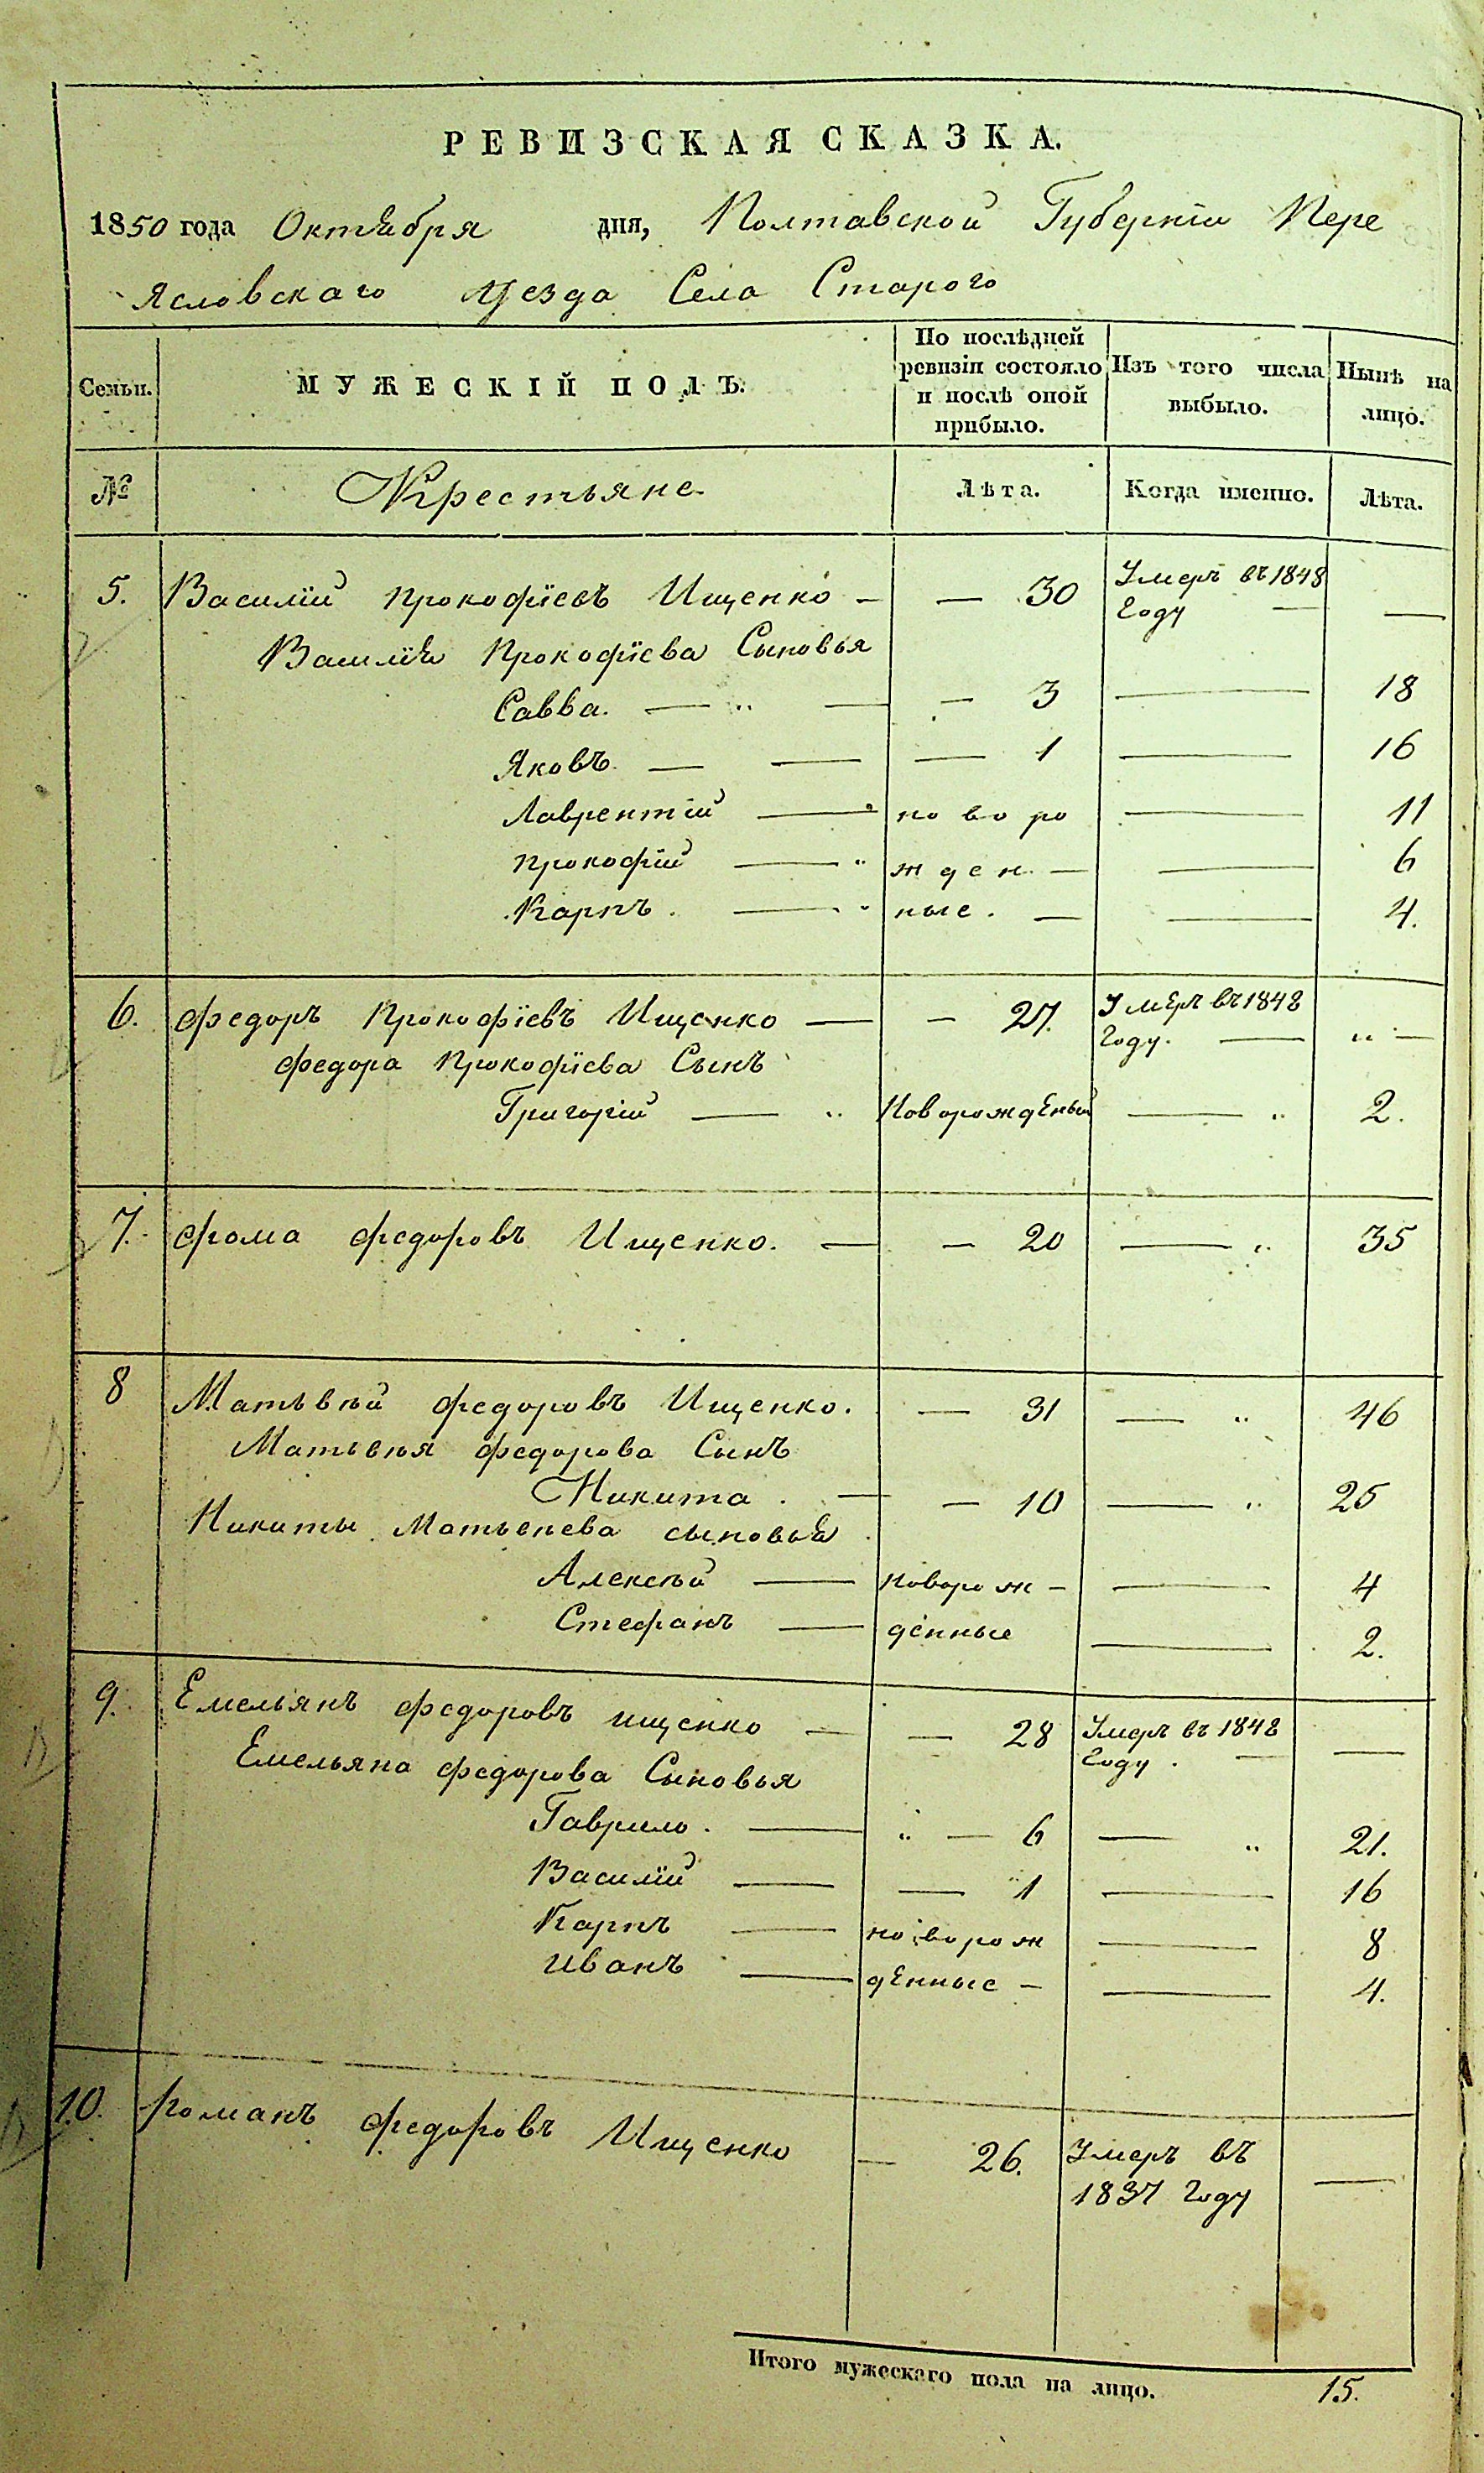 РЕВИЗСКАЯ СКАЗКА.
1850 года Октября дня, Полтавской Губерніи Пере
ясловскаго уезда Села Старого
Семьи. МУЖЕСКІЙ ПОЛЪ. По послѣдней ревизіи состояло и послѣ оной прибыло. Изъ того числа выбыло. Нынѣ на лицо.
№ Крестьяне Лѣта. Когда именно. Лѣта.
5. Василій Прокофіевъ Ищенко — — 30 Умеръ въ 1848 году — —
Василія Прокофіева Сыновья
Савва. — — — 3 — 18
Яковъ — — — 1 — 16
Лаврентій — ново ро — 11
Прокофій — жден — — 6
Карпъ. — ные. — — 4.
6. Федоръ Прокофіевъ Ищенко — — 27. Умеръ въ 1848 году. — —
Федора Прокофіева Сынъ
Григорій — Новорожденый — 2.
7. Фома Федоровъ Ищенко. — — 20 — 35
8 Матьвѣй Федоровъ Ищенко. — 31 — 46
Матьвѣя Федорова Сынъ
Никита. — — 10 — 25
Никиты Матьвѣева сыновья
Алексѣй — новорож — — 4
Стефанъ — денные — 2.
9. Емельянъ Федоровъ ищенко — — 28 Умеръ въ 1848 году. — —
Емельяна Федорова Сыновья
Гаврило. — — 6 — 21.
Василій — — 1 — 16
Карпъ — новорож — 8
Иванъ — денные — — 4.
10. Романъ Федоровъ Ищенко — 26. Умеръ въ
1837 году —
Итого мужескаго пола на лицо. 15.